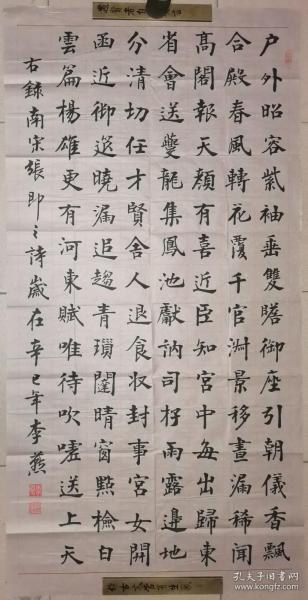 户外昭容紫袖垂雙瞻御座引朝儀香飄
合殿春風轉花覆千官淑景移晝漏稀聞
高閣報天顏有喜近臣知宮中每出歸東
省會送夔龍集鳳池獻納司存雨露邊地
分清切任才賢舍人退食收封事宮女開
函近御筵曉漏追趨青瑣闥晴窗點檢白
雲篇楊雄更有河東賦唯待吹噓送上天
右錄南宋張即之詩歲在辛巳年李燕
孔夫子旧书网